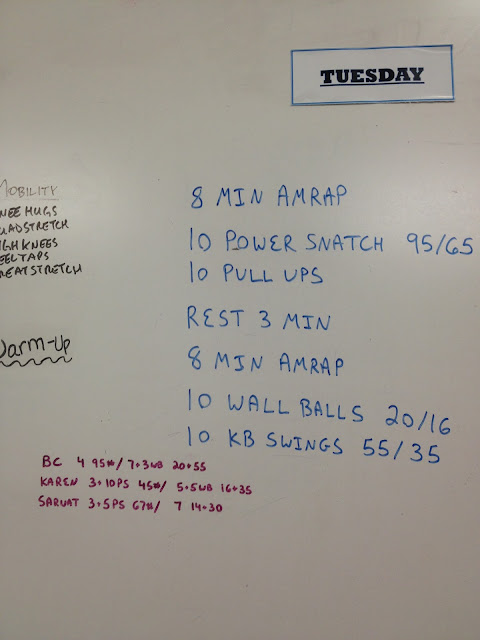 TUESDAY
MOBILITY
NEE HUGS
UADSTRETCH
IGH KNEES
EEL TAPS
REATSTRETCH
Warm-Up
8 MIN AMRAP
10 POWER SNATCH 95/65
10 PULL UPS
REST 3 MIN
8 MIN AMRAP
10 WALL BALLS 20/16
10 KB SWINGS 55/35
BC 4 95#/ 7+3WB 20+55
KAREN 3+10PS 45#/ 5+5WB 16+35
SARVAT 3+5PS 67#/ 7 14+30